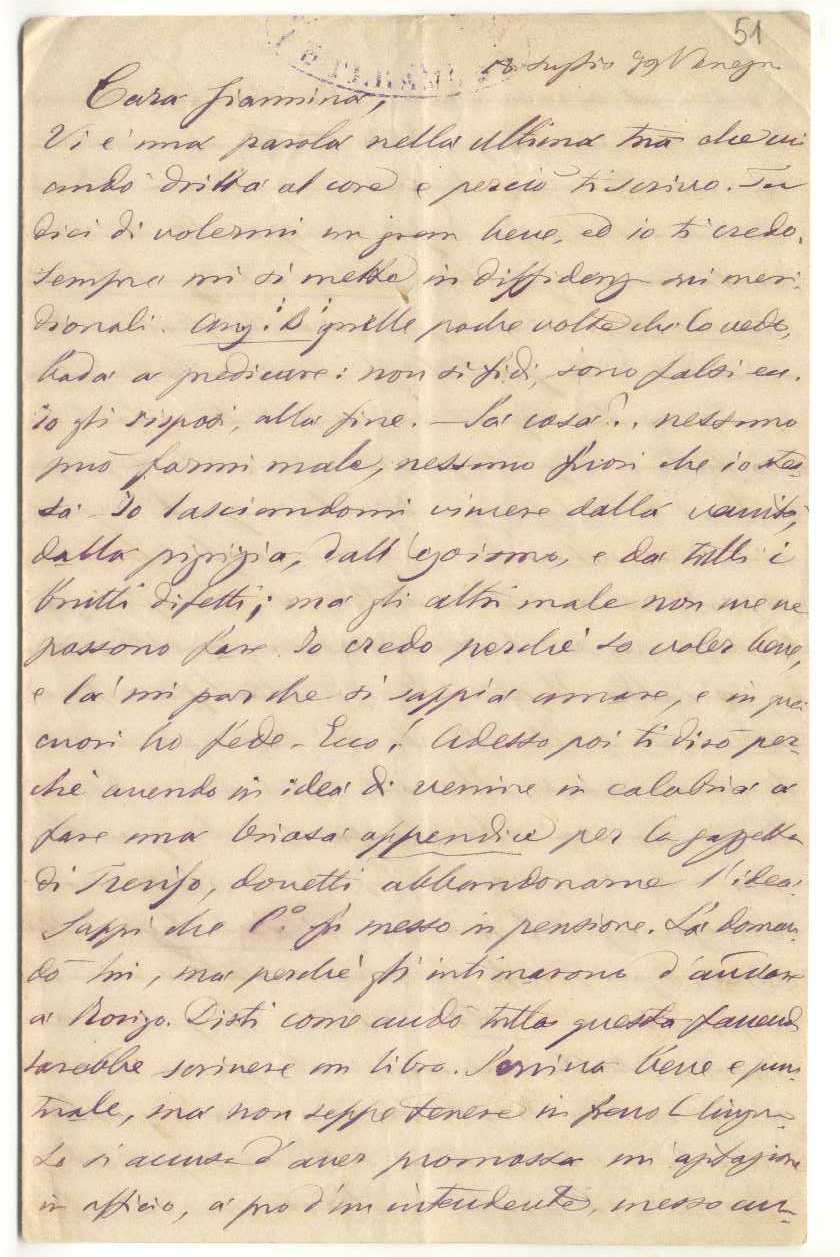 51
Luglio 99 Venezia
Cara Giannina,
Vi è una parola nella ultima tua che mi
andò dritta al core e perciò ti scrivo. Tu
dici di volermi un gran bene, ed io ti credo.
Sempre mi si mette in diffidenza sui meri-
dionali. Ang: B. quelle poche volte che lo vedo,
bada a predicare: non si fidi, sono falsi ecc.
Io gli risposi, alla fine. – Sa cosa?.. nessuno
può farmi male, nessuno fuori che io stes-
sa. Io lasciandomi vincere dalla vanità,
dalla pigrizia, dall'egoismo, e da tutti i
brutti difetti; ma gli altri male non me ne
possono fare. Io credo perchè so voler bene,
e là mi par che si sappia amare, e in quei
cuori ho fede – Ecco! Adesso poi ti dirò per-
chè avendo in idea di venire in calabria a
fare una appendice per la gazzetta
di Treviso, dovetti abbandonarne l'idea.
Sappi che C.° fu messo in pensione. La doman-
dò lui, ma perchè gli intimarono d'andare
a Rovigo. Dirti come andò tutta questa faccenda
sarebbe scrivere un libro. Serviva bene e pun-
tuale, ma non seppe tenere in freno la lingua.
Lo si accusa d'aver promossa un'agitazione
in ufficio, a pro d'un intendente, messo an-